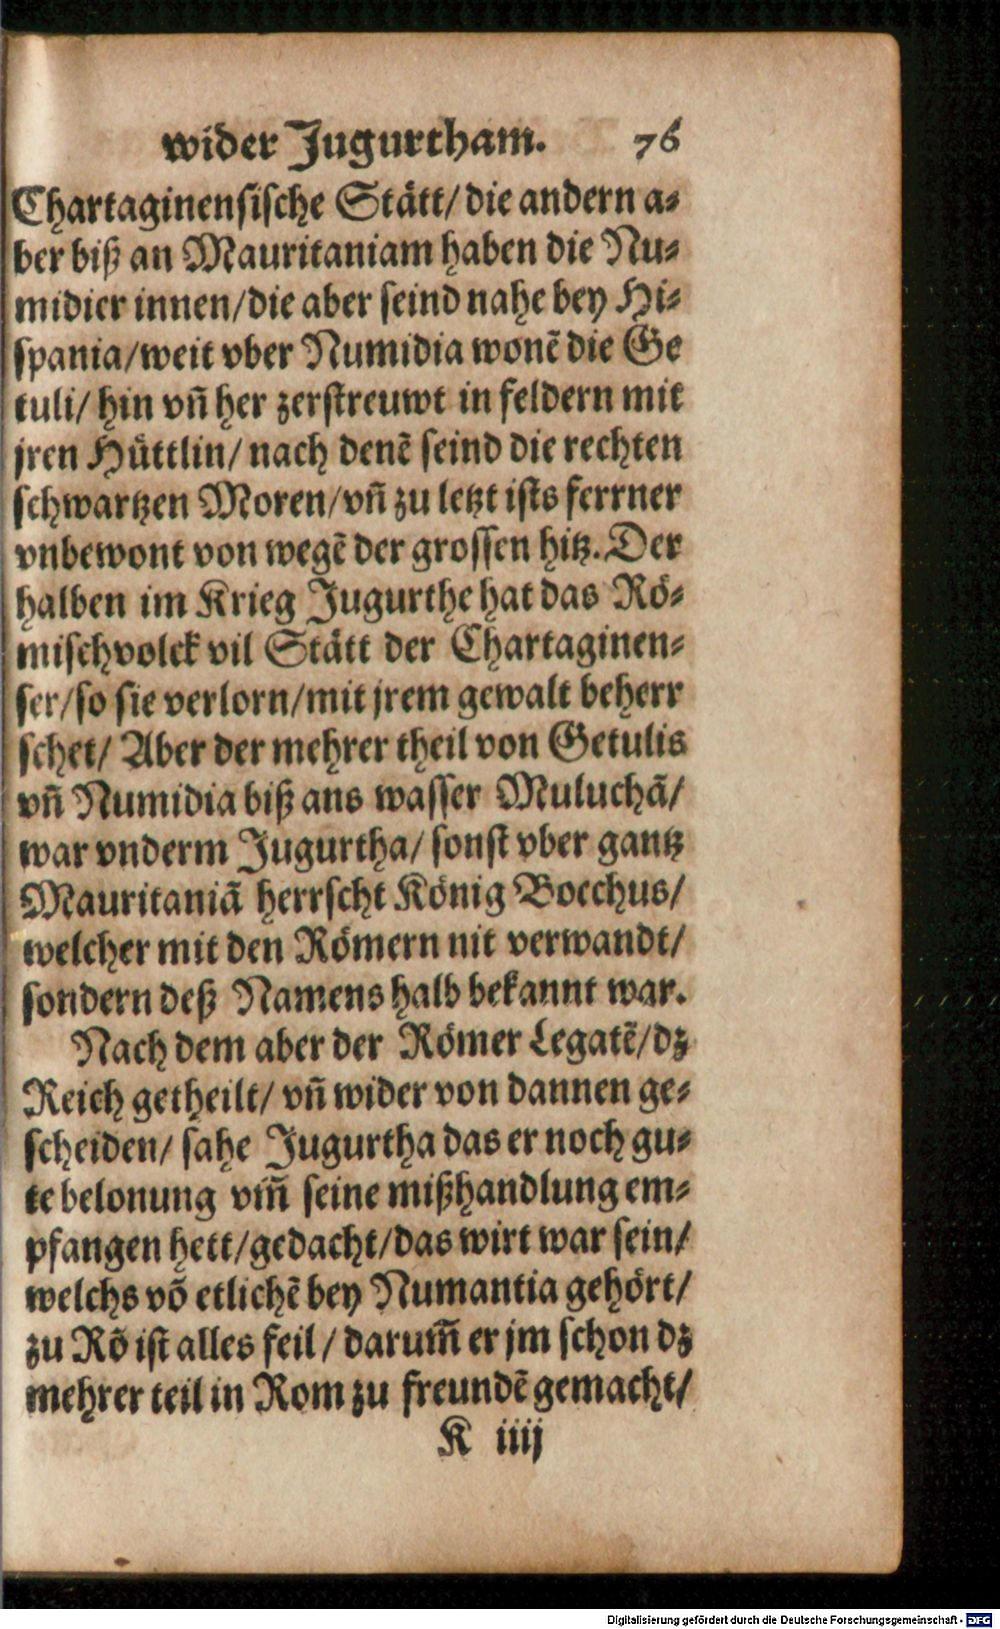 wider Jugurtham. 76
Chartaginensische Stätt/ die andern a⸗
ber biß an Mauritaniam haben die Nu⸗
midier innen/die aber seind nahe bey Hi⸗
spania/weit vber Numidia wonẽ die Ge
tuli/ hin vñ her zerstreuwt in feldern mit
jren Hüttlin/ nach denẽ seind die rechten
schwartzen Moren/vñ zu letzt ists ferrner
vnbewont von wegẽ der grossen hitz. Der
halben im Krieg Jugurthe hat das Rö⸗
mischvolck vil Stätt der Chartaginen⸗
ser/so sie verlorn/mit jrem gewalt beherr
schet/ Aber der mehrer theil von Getulis
vñ Numidia biß ans wasser Muluchã/
war vnderm Jugurtha/ sonst vber gantz
Mauritaniã herrscht König Bocchus/
welcher mit den Römern nit verwandt/
sondern deß Namens halb bekannt war.
Nach dem aber der Römer Legatẽ/dz
Reich getheilt/ vñ wider von dannen ge⸗
scheiden/ sahe Jugurtha das er noch gu⸗
te belonung vm̃ seine mißhandlung em⸗
pfangen hett/gedacht/das wirt war sein/
welchs võ etlichẽ bey Numantia gehört/
zu Rõ ist alles feil/ darum̃ er jm schon dz
mehrer teil in Rom zu freundẽ gemacht/
K iiij
Digitalisierung gefördert durch die Deutsche Forschungsgemeinschaft - DFG